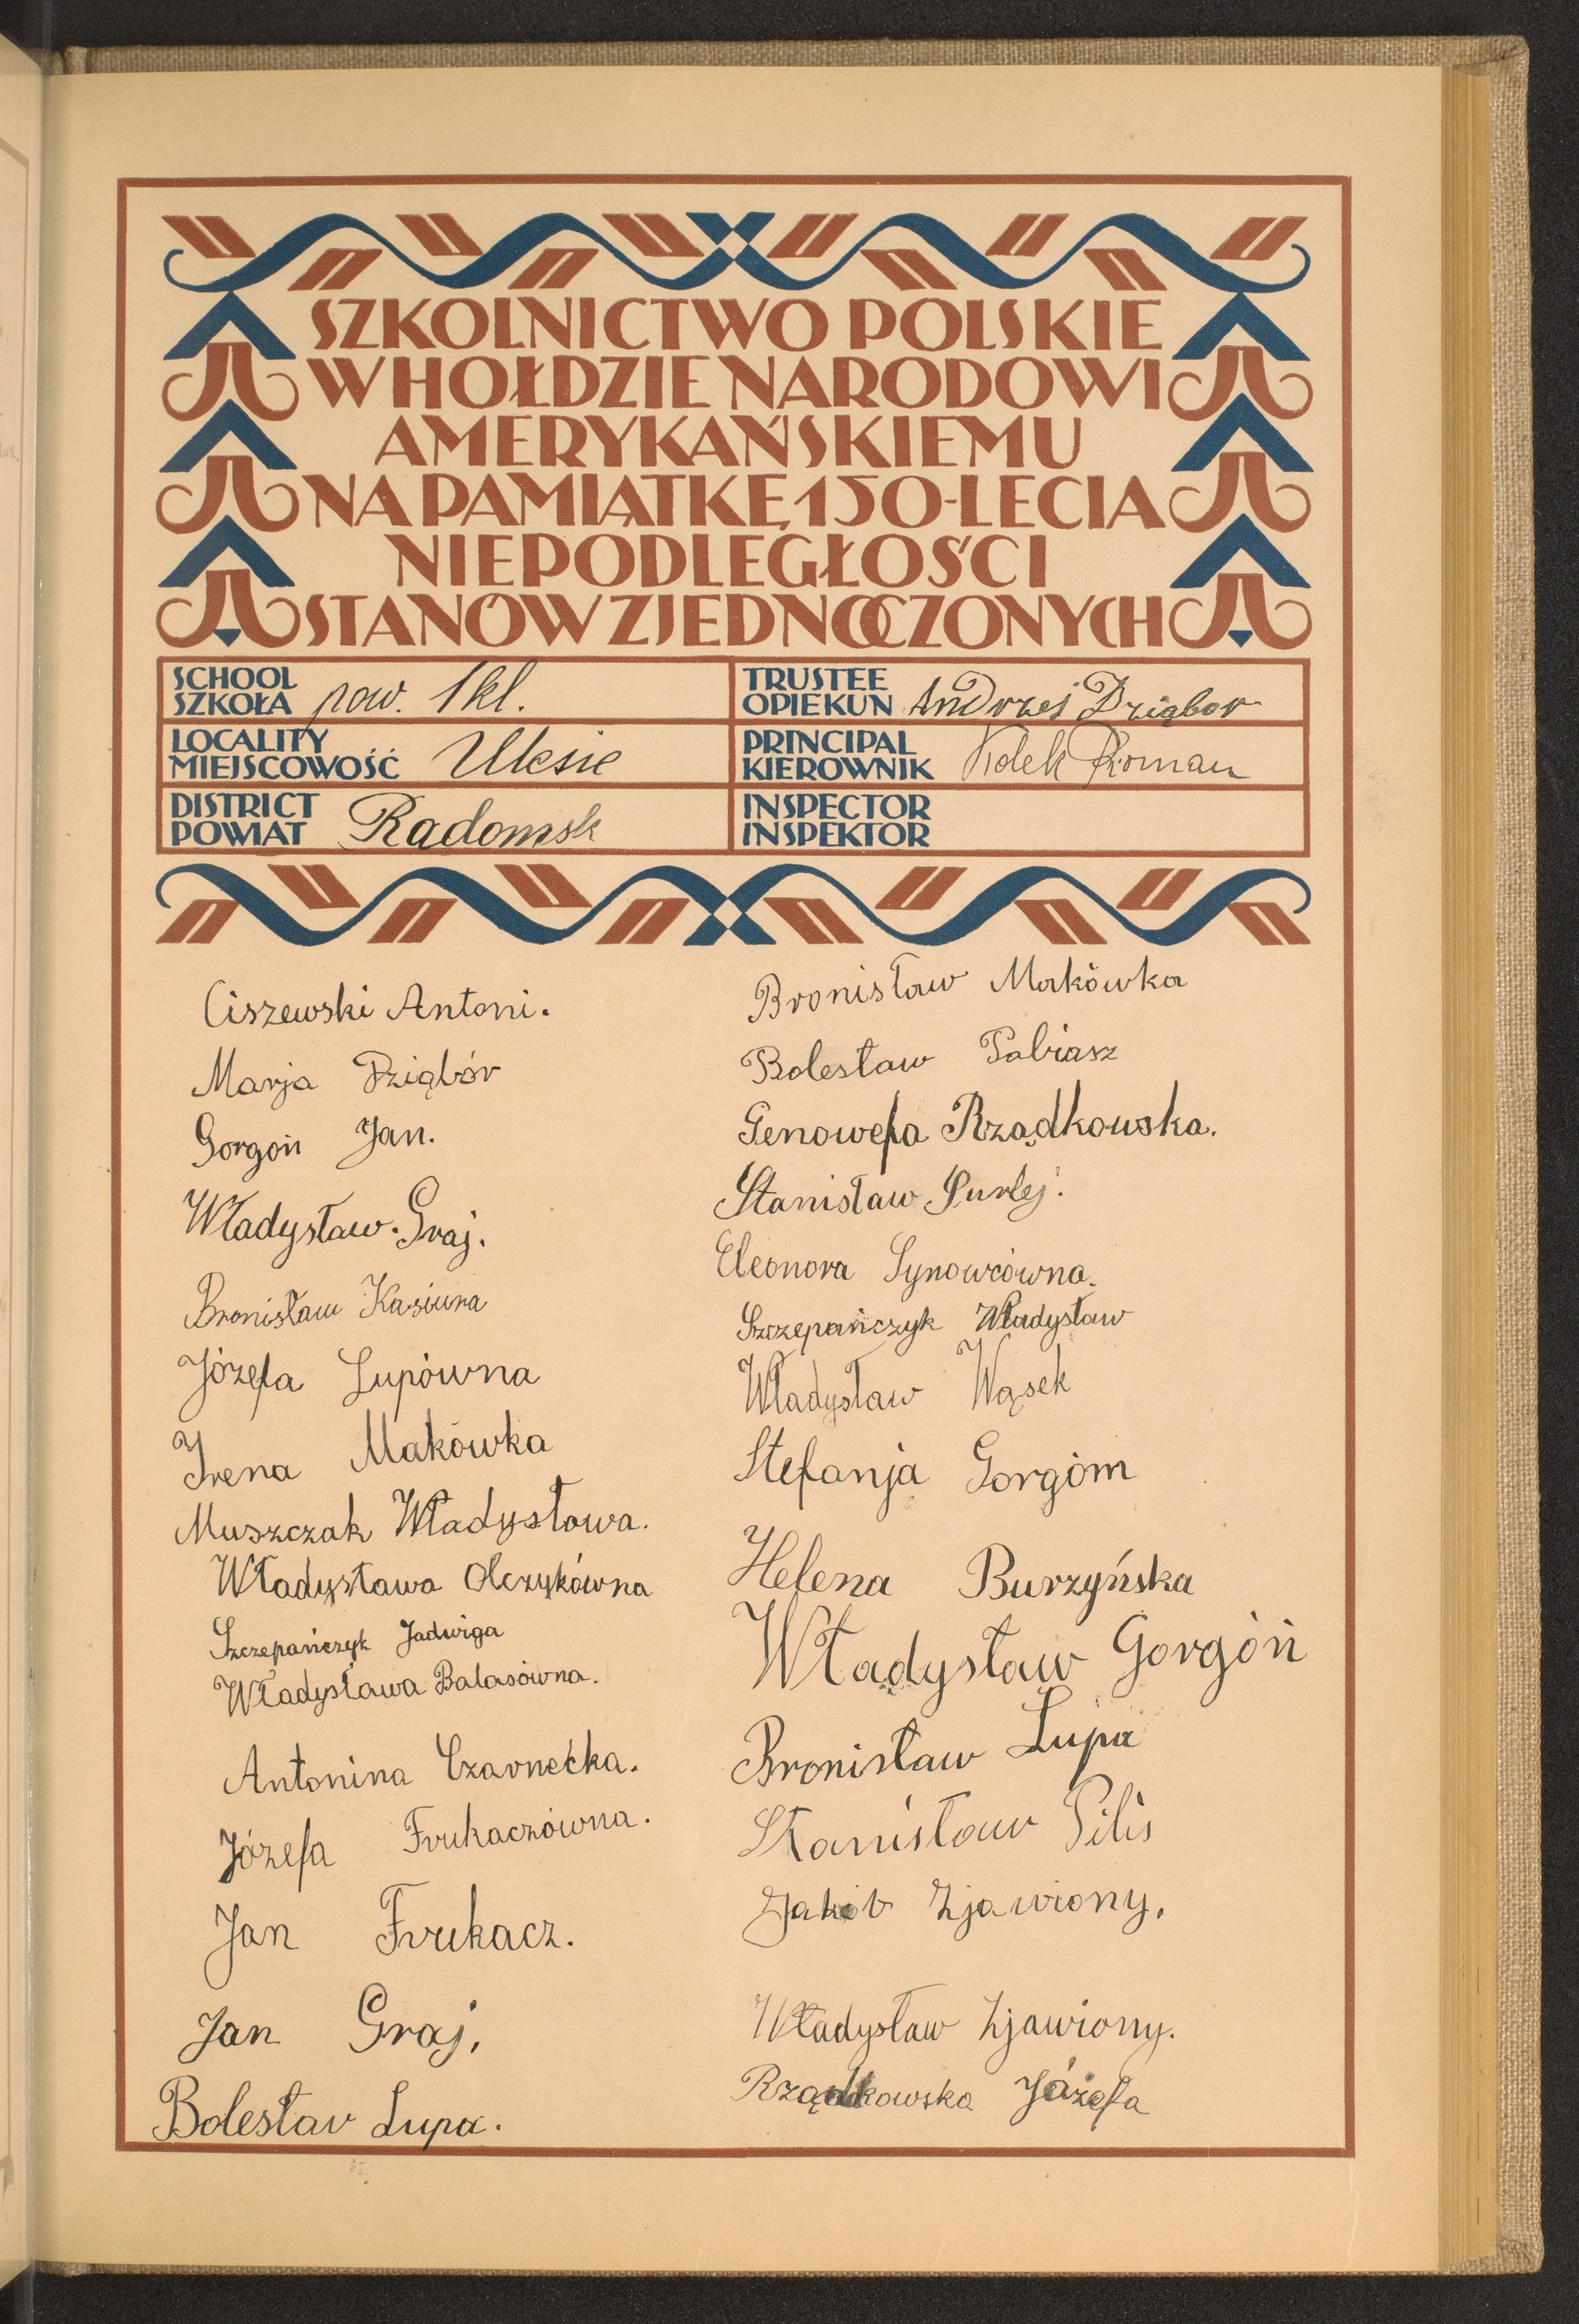 SZKOLNICTWO POLSKIE
W HOŁDZIE NARODOWI
AMERYKAŃSKIEMU
NA PAMIĄTKĘ 150-LECIA
NIEPODLEGŁOŚCI
STANÓW ZJEDNOCZONYCH
SCHOOL
SZKOŁA pow. 1 kl.
TRUSTEE
OPIEKUN Andrzej Dziąbor
LOCALITY
MIEJSCOWOŚĆ Ulesie
PRINCIPAL
KIEROWNIK Roman
DISTRICT
POWIAT Radomsk
INSPECTOR
INSPEKTOR
Ciszewski Antoni.
Marja Dziąbór
Gorgoń Jan.
Władysław Graj.
Bronisław Kasiura
Józefa Lupówna
Irena Makówka
Muszczak Władysłowa.
Władysława Olczykówna
Szczepańczyk Jadwiga
Władysława Balasówna.
Antonina Czarnecka.
Józefa Frukaczówna.
Jan Frukacz.
Jan Graj,
Bolesłav Lupa.
Bronisław Makówka
Bolesław Tabiasz
Genowefa Rządkowska.
Stanisław Surlej.
Eleonora Synowcówna.
Szczepańczyk Władysław
Władysław Wąsek
Stefanja Gorgóm
Helena Burzyńska
Władysław Gorgóń
Bronisław Lupa
Stanisław Pilis
Jakób Zjawiony,
Władysław Zjawiony.
Rządkowska Józefa